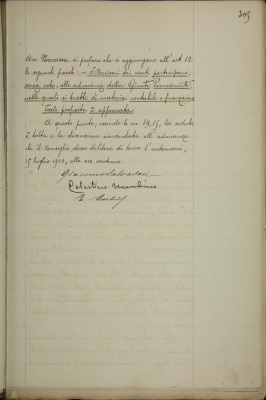 305
si propone che si aggiungano all'art. 12
le seguenti parole: « i Revisori dei conti partecipano,
senza voto, alle adunanze della Giunta Permanente,
nelle quali si tratti di materia contabile o finanziaria
Tale proposta è approvata.
A questo punto, essendo le ore 19,15, la seduta
è tolta e la discussione rimandata all'adunanza
che il Consiglio stesso delibera di tenere l'indomani,
15 luglio 1910, alle ore
Giacomo Salvadori
Celestino